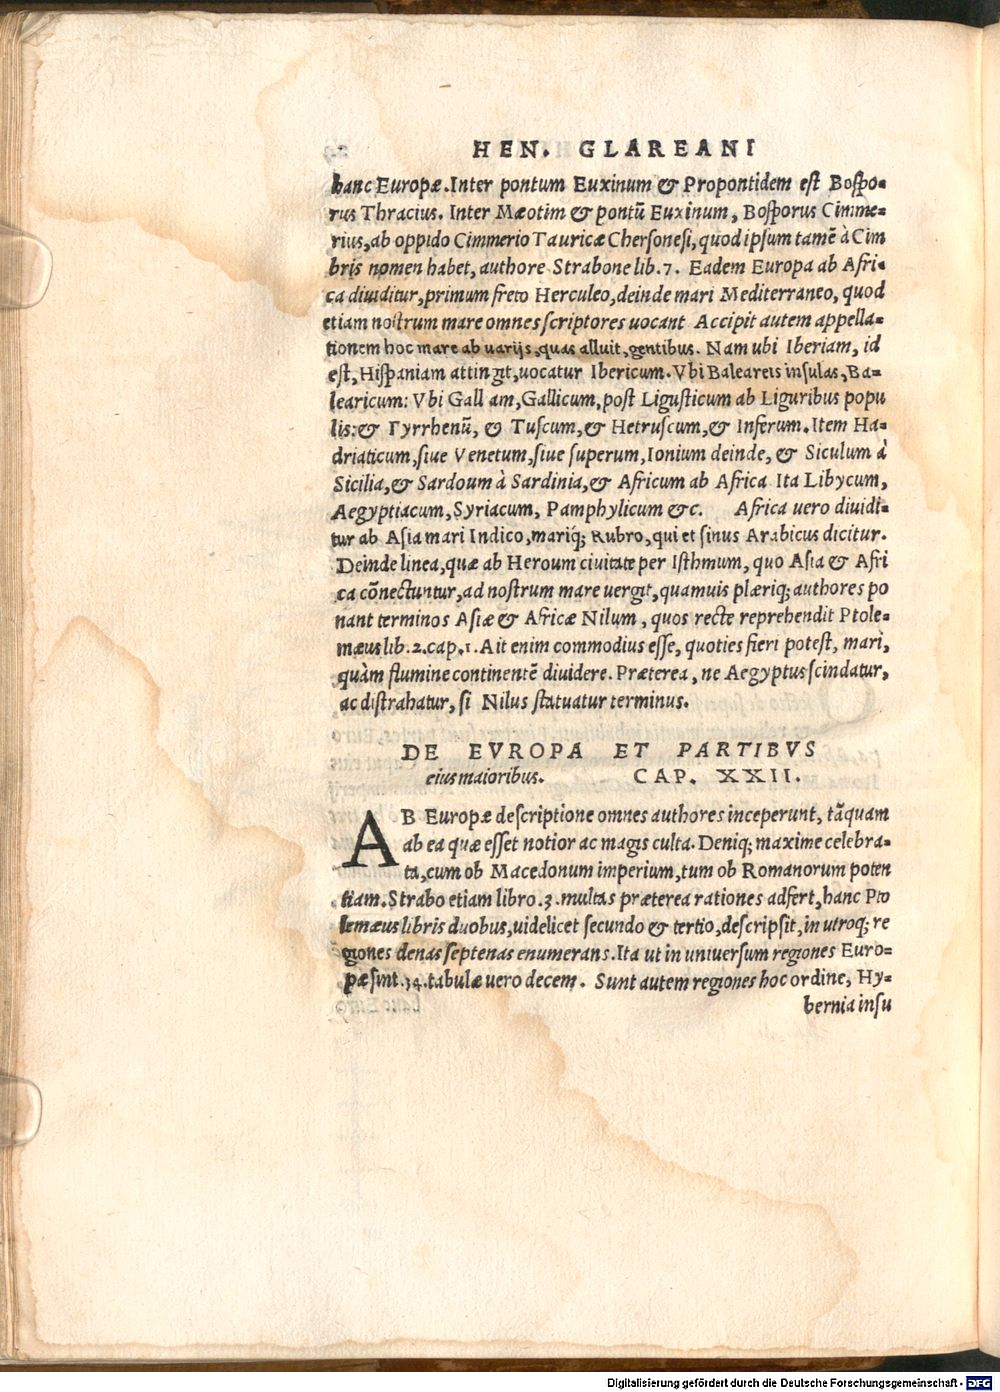 HEN. GLAREANI
hanc Europæ. Inter pontum Euxinum & Propontidem est Bospo-
rus Thracius. Inter Mæotim & pontū Euxinum, Bosporus Cimme-
rius, ab oppido Cimmerio Tauricæ Chersonesi, quod ipsum tamē à Cim
bris nomen habet, authore Strabone lib. 7. Eadem Europa ab Afri-
ca diuiditur, primum freto Herculeo, deinde mari Mediterraneo, quod
etiam nostrum mare omnes scriptores uocant Accipit autem appella-
tionem hoc mare ab uarijs, quas alluit, gentibus. Nam ubi Iberiam, id
est, Hispaniam attingit, uocatur Ibericum. Vbi Baleareis insulas, Ba-
learicum: Vbi Gall am, Gallicum, post Ligusticum ab Liguribus popu
lis: & Tyrrhenū, & Tuscum, & Hetruscum, & Inferum. Item Ha-
driaticum, siue Venetum, siue superum, Ionium deinde, & Siculum à
Sicilia, & Sardoum à Sardinia, & Africum ab Africa Ita Libycum,
Aegyptiacum, Syriacum, Pamphylicum &c. Africa uero diuidi-
tur ab Asia mari Indico, mariq; Rubro, qui et sinus Arabicus dicitur.
Deinde linea, quæ ab Heroum ciuitate per Isthmum, quo Asia & Afri
ca cōnectuntur, ad nostrum mare uergit, quamuis plæriq; authores po
nant terminos Asiæ & Africæ Nilum, quos recte reprehendit Ptole-
mæus lib. 2. cap. 1. Ait enim commodius esse, quoties fieri potest, mari,
quàm flumine continentē diuidere. Præterea, ne Aegyptus scindatur,
ac distrahatur, si Nilus statuatur terminus.
DE EVROPA ET PARTIBVS
eius maioribus. CAP. XXII.
AB Europæ descriptione omnes authores inceperunt, tāquam
ab ea quæ esset notior ac magis culta. Deniq; maxime celebra-
ta, cum ob Macedonum imperium, tum ob Romanorum poten
tiam. Strabo etiam libro. 3. multas præterea rationes adfert, hanc Pto
lemæus libris duobus, uidelicet secundo & tertio, descripsit, in utroq; re
giones denas septenas enumerans. Ita ut in uniuersum regiones Euro-
pæ sint. 34. tabulæ uero decem. Sunt autem regiones hoc ordine, Hy-
bernia insu
Digitalisierung gefördert durch die Deutsche Forschungsgemeinschaft - DFG